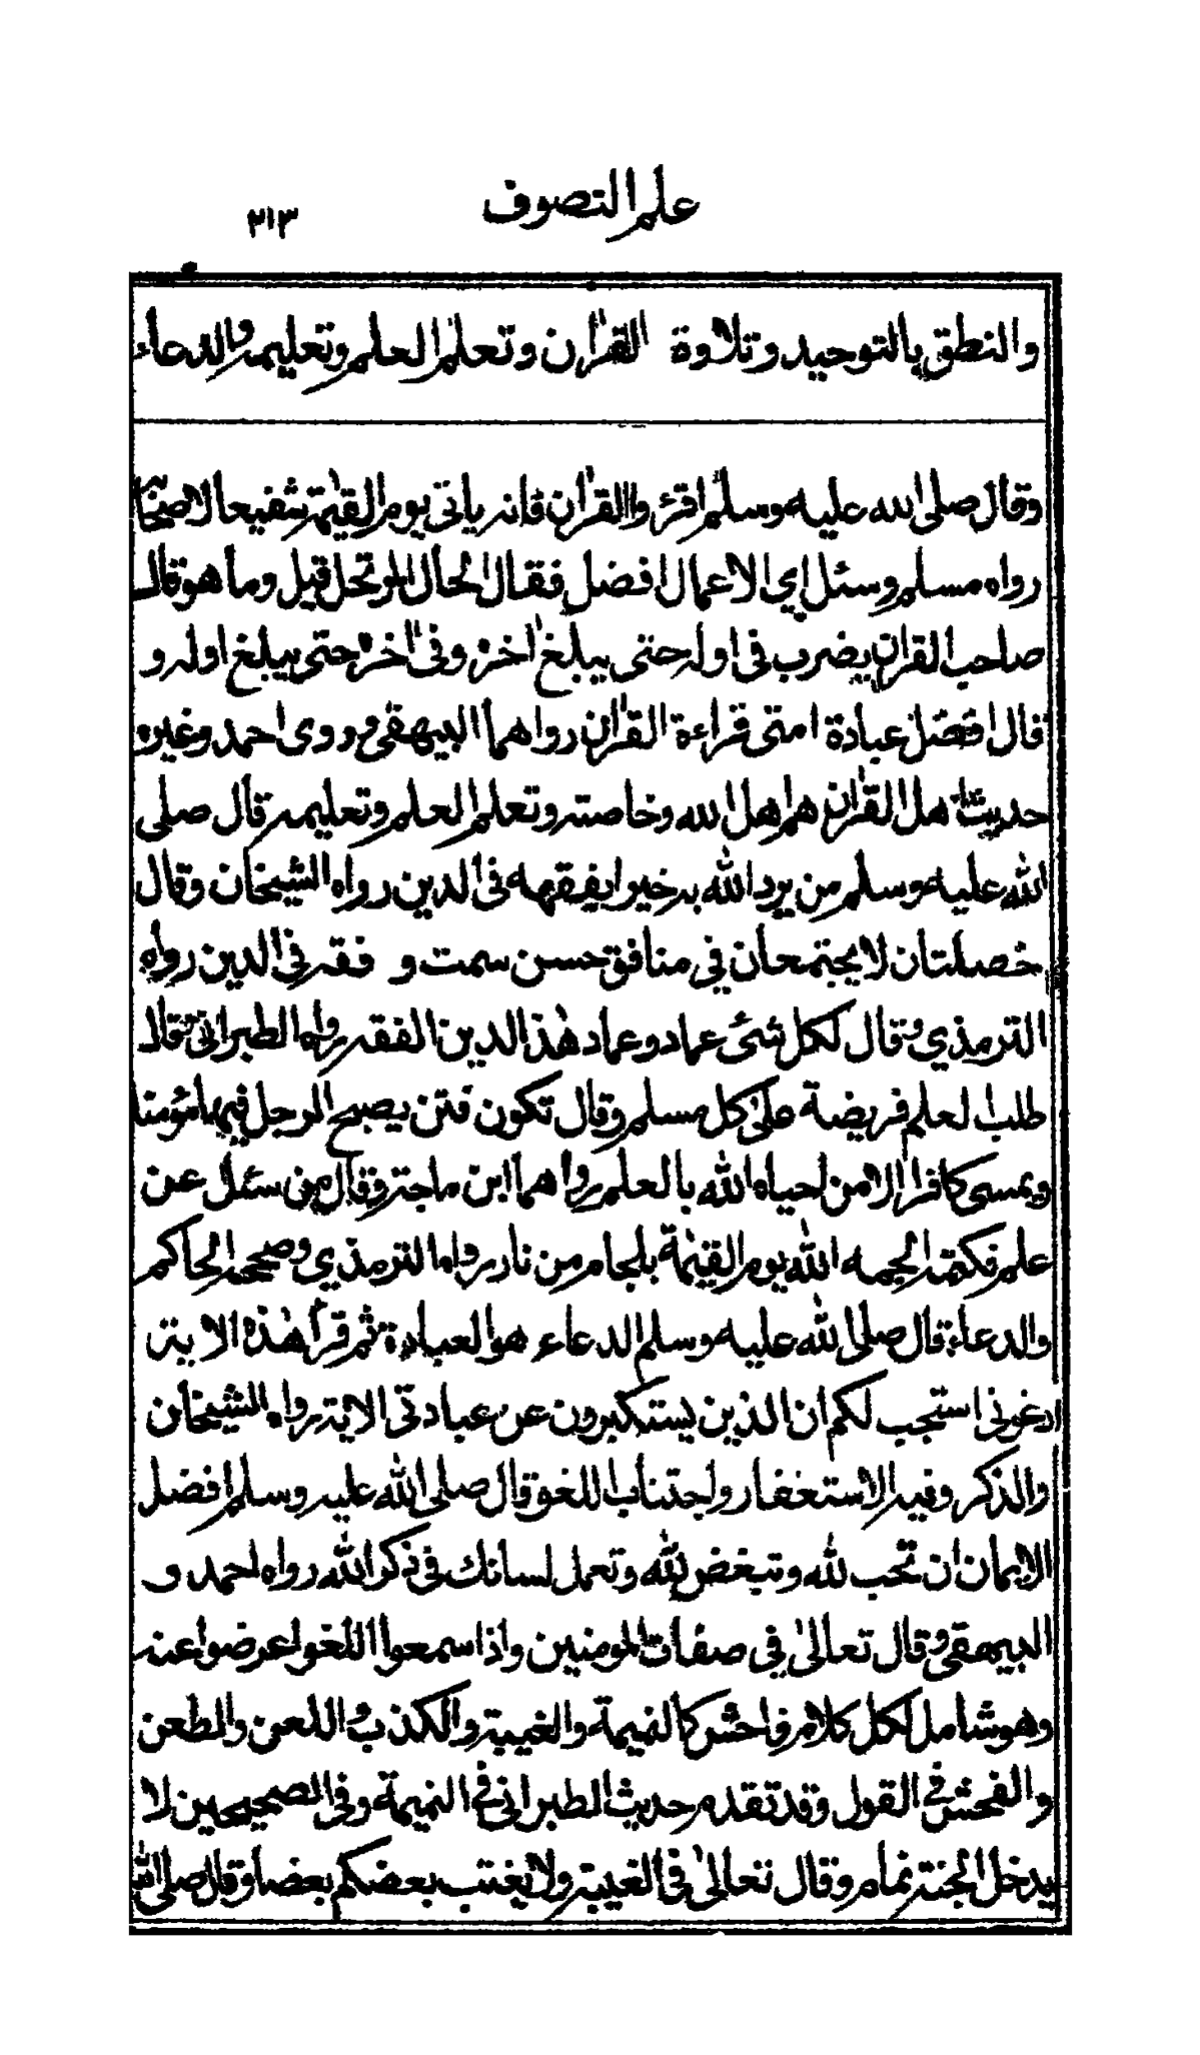 علم التصوف
٢١٣
والنطق بالتوحيد وتلاوة القرآن وتعلم العلم وتعليمه والدعاء
وقال صلى الله عليه وسلم اقرؤ واالقرآن فانه ياتى يوم القيمة شفيعا لاصحابه
رواه مسلم وسئل اي الاعمال افضل فقال الحال المرتحل قيل وما هو قال
صاحب القرآن يضرب فى اوله حتى يبلغ آخره وفى آخره حتى يبلغ اوله و
قال افضل عبادة امتى قراءة القرآن رواهما البيهقى وروى احمد وغيره
حديث اهل القرآن هم اهل الله وخاصته وتعلم العلم وتعليمه قال صلى
الله عليه وسلم من يرد الله به خيرا يفقهه فى الدين رواه الشيخان وقال
خصلتان لا يجتمعان في منافق حسن سمت و فقه فى الدين رواه
الترمذي وقال لكل شئ عماد وعماد هذا الدين الفقه رواه الطبرانى وقال
طلب العلم فريضة على كل مسلم وقال تكون فتن يصبح الرجل فيها مؤمنا
ويمسى كافرا الا من احياه الله بالعلم رواهما ابن ماجة وقال من سئل عن
علم فكتمه الجمه الله يوم القيمة بلجام من نار رواه الترمذي وصححه الحاكم
والدعاء قال صلى الله عليه وسلم الدعاء هو العبادة ثم قرأ هذه الاية
ادعونى استجب لكم ان الذين يستكبرون عن عبادتى الاية رواه الشيخان
والذكر وفيه الاستغفار واجتناب اللغو قال صلى الله عليه وسلم افضل
الايمان ان تحب لله وتبغض لله وتعمل لسانك فى ذكر الله رواه احمد و
البيهقى وقال تعالى في صفات المومنين واذا سمعوا اللغو اعرضوا عنه
وهو شامل لكل كلام فاحش كالنميمة والغيبة والكذب واللعن والطعن
والفحش في القول وقد تقدم حديث الطبرانى في النميمة وفى الصحيحين لا
يدخل الجنة نمام وقال تعالى فى الغيبة ولا يغتب بعضكم بعضا وقال صلى الله